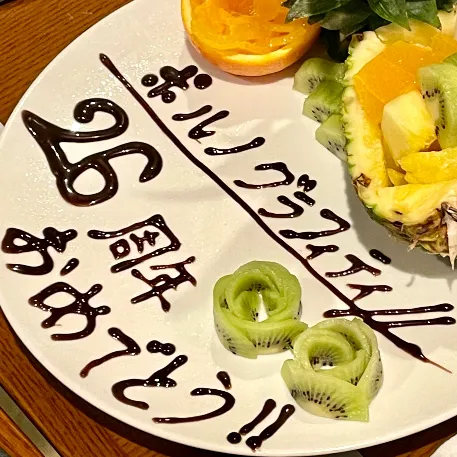 ポルノグラフィティ!!
26周年
おめでとう!!